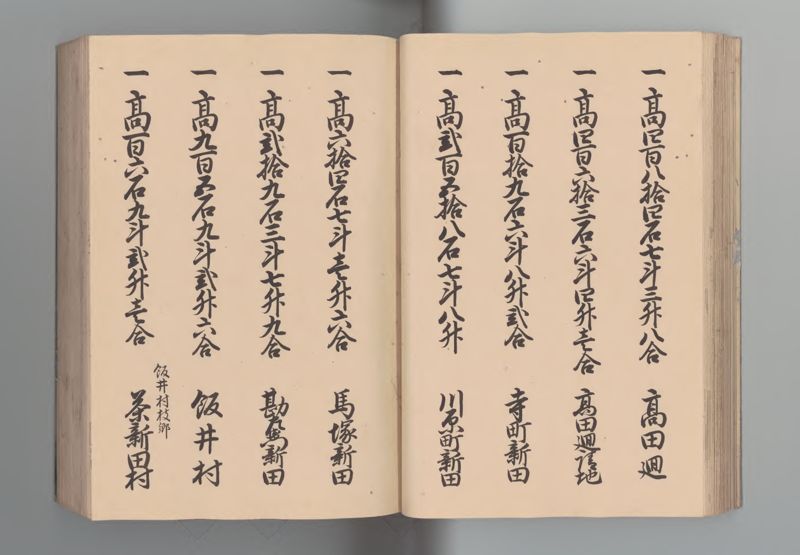 一 高四百八拾四石七斗三升八合 高田廻
一 高四百六拾三石六斗四升壱合 高田廻請地
一 高百拾九石六斗八升弐合 寺町新田
一 高弐百五拾八石七斗八升 川原町新田
一 高六拾四石七斗壱升六合 馬塚新田
一 高弐拾九石三斗七升九合 勘左衛門新田
一 高九百五石九斗弐升六合 飯井村
飯井村枝郷
一 高百六石九斗弐升壱合 茶新田村